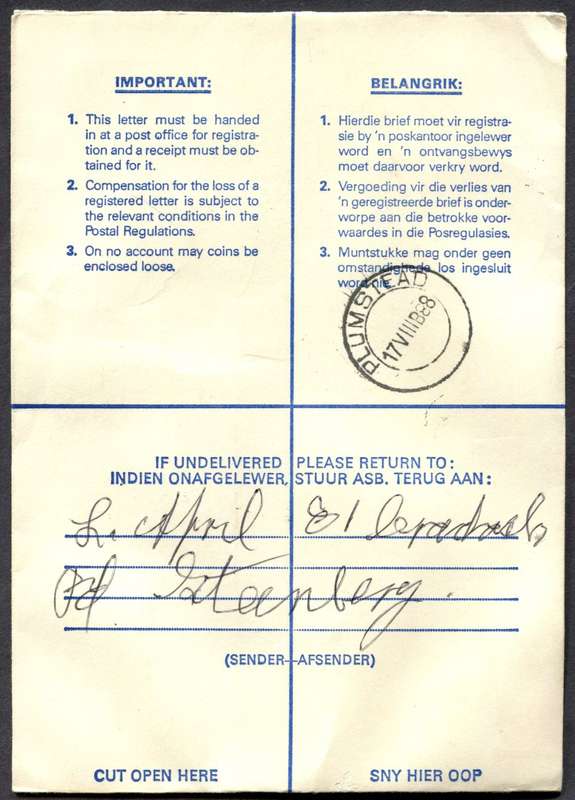 IMPORTANT:
1. This letter must be handed
in at a post office for registra-
tion and a receipt must be ob-
tained for it.
2. Compensation for the loss of a
registered letter is subject to
the relevant conditions in the
Postal Regulations.
3. On no account may coins be
enclosed loose.
BELANGRIK:
1. Hierdie brief moet vir registra-
sie by 'n poskantoor ingelewer
word en 'n ontvangsbewys
moet daarvoor verkry word.
2. Vergoeding vir die verlies van
'n geregistreerde brief is onder-
worpe aan die betrokke voor-
waardes in die Posregulasies.
3. Muntstukke mag onder geen
omstandighede los ingesluit
word nie.
PLUMSTEAD
17VIII
IF UNDELIVERED PLEASE RETURN TO:
INDIEN ONAFGELEWER, STUUR ASB. TERUG AAN:
L. April
Rd Steenberg.
(SENDER—AFSENDER)
CUT OPEN HERE SNY HIER OOP